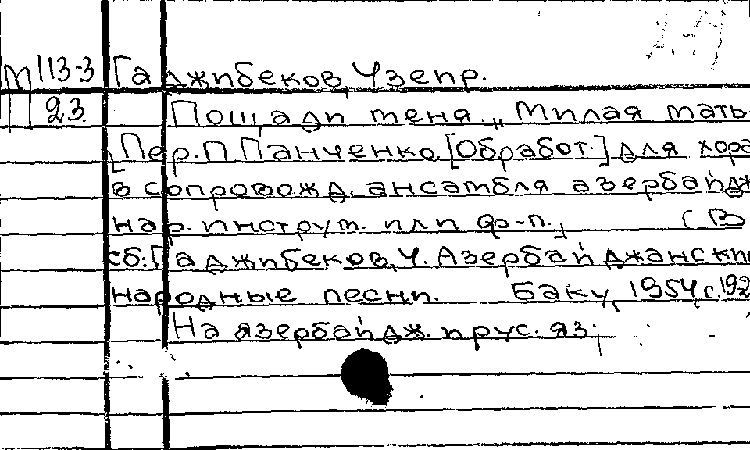 М 113-3 Гаджибеков, Узеир.
23 Пощади меня. „Милая мать
[Пер. П. Панченко. [Обработ.] для хора
в сопровожд. ансамбля азербайдж
нар. инструм. или ф-п.] (В
сб: Гаджибеков, У. Азербайджански
народные песни. Баку, 1954 г. 192
На азербайдж. и рус. яз.